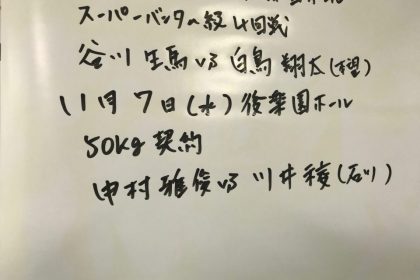 スーパーバンタム級4回戦
谷川 生馬 vs 白鳥 翔太(ネモト)
11月7日(水)後楽園ホール
50kg契約
中村 雅俊 vs 川井 稜(石川)